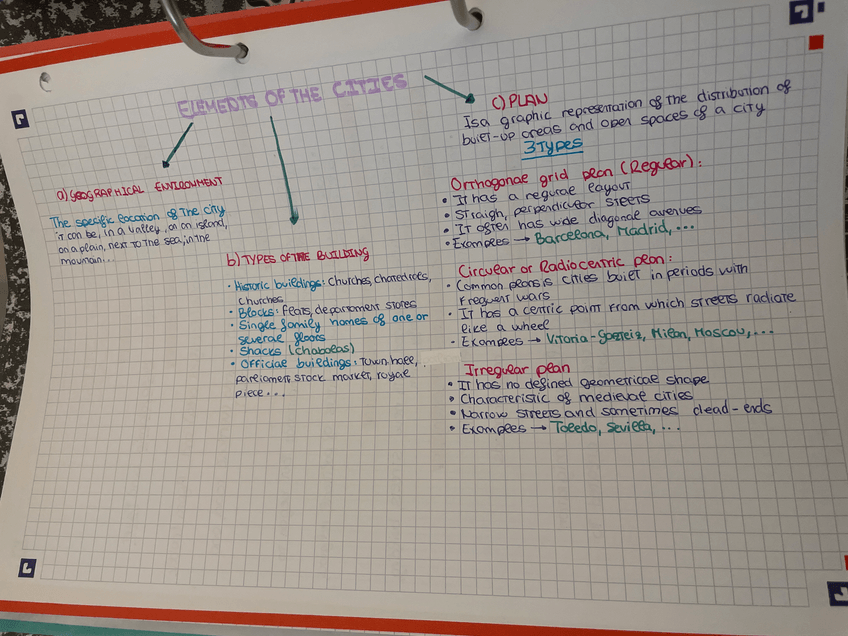 ELEMENTS OF THE CITIES
a) GEOGRAPHICAL ENVIRONMENT
The specific location of the city
it can be, in a valley, on an island,
on a plain, next to the sea, in the
mountain...
b) TYPES OF THE BUILDING
• Historic buildings: Churches, chatedrals,
churches
• Blocks: Flats, department stores
• Single family homes of one or
several floors
• Shacks (chabolas)
• Official buildings: Town hall,
parliament stock market, royal
piece...
c) PLAN
Is a graphic representation of the distribution of
built-up areas and open spaces of a city
3 Types
Orthogonal grid plan (Regular):
• It has a regural layout
• Straigh, perpendicular streets
• It often has wide diagonal avenues
• Examples → Barcelona, Madrid, ...
Circular or Radiocentric plan:
• Common plans is cities built in periods with
frequent wars
• It has a centric point from which streets radiate
like a wheel
• Examples → Vitoria-Gasteiz, Milan, Moscow, ...
Irregular plan
• It has no defined geometrical shape
• Characteristic of medieval cities
• Narrow streets and sometimes dead-ends
• Examples → Toledo, Sevilla, ...